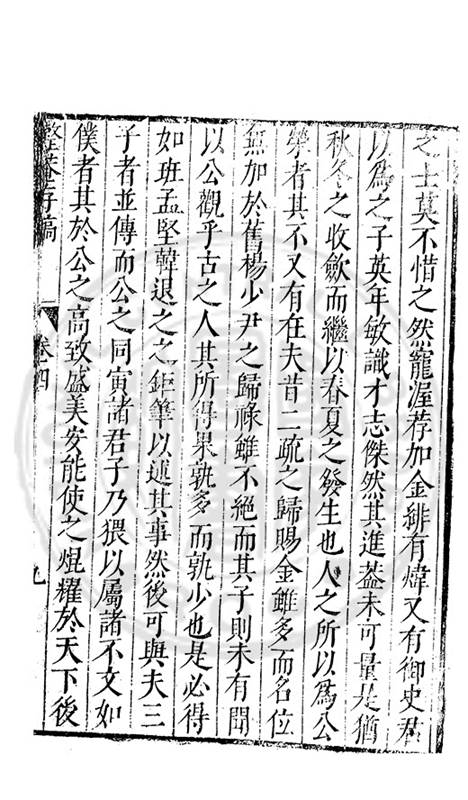 之士莫不惜之然寵渥荐加金緋有煒又有御史君
以為之子英年敏識才志傑然其進葢未可量是猶
秋冬之收斂而繼以春夏之發生也人之所以為公
榮者其不又有在夫昔二疏之歸賜金雖多而名位
無加於舊楊少尹之歸祿雖不絕而其子則未有聞
以公觀乎古之人其所得果孰多而孰少也是必得
如班孟堅韓退之之鉅筆以述其事然後可與夫三
子者並傳而公之同寅諸君子乃猥以屬諸不文如
僕者其於公之高致盛美安能使之焜耀於天下後
整菴存稿
卷四
九